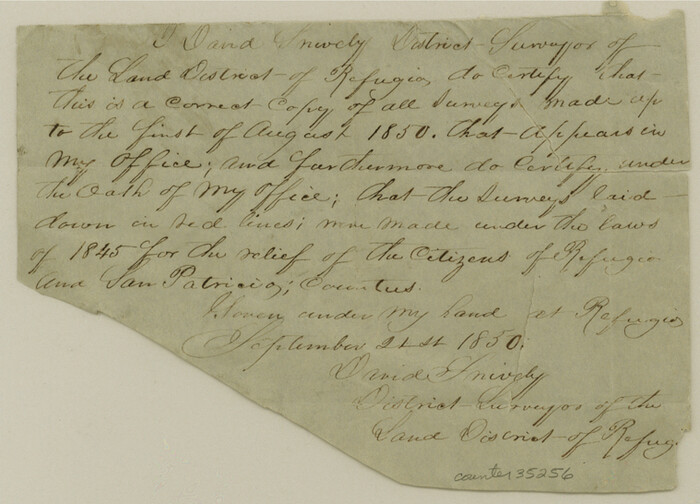 I David Snively District Surveyor of
the Land District of Refugio, do Certify that
this is a Correct Copy of all Surveys made up
to the first of August 1850. that appears in
my office; and furthermore do Certify under
the Oath of my office; that the Surveys laid
down in red lines; were made under the laws
of 1845 for the relief of the Citizens of Refugio
and San Patricio; Counties.
Given under my hand at Refugio
September 21st 1850.
David Snively
District Surveyor of the
Land District of Refug.
counter 35256